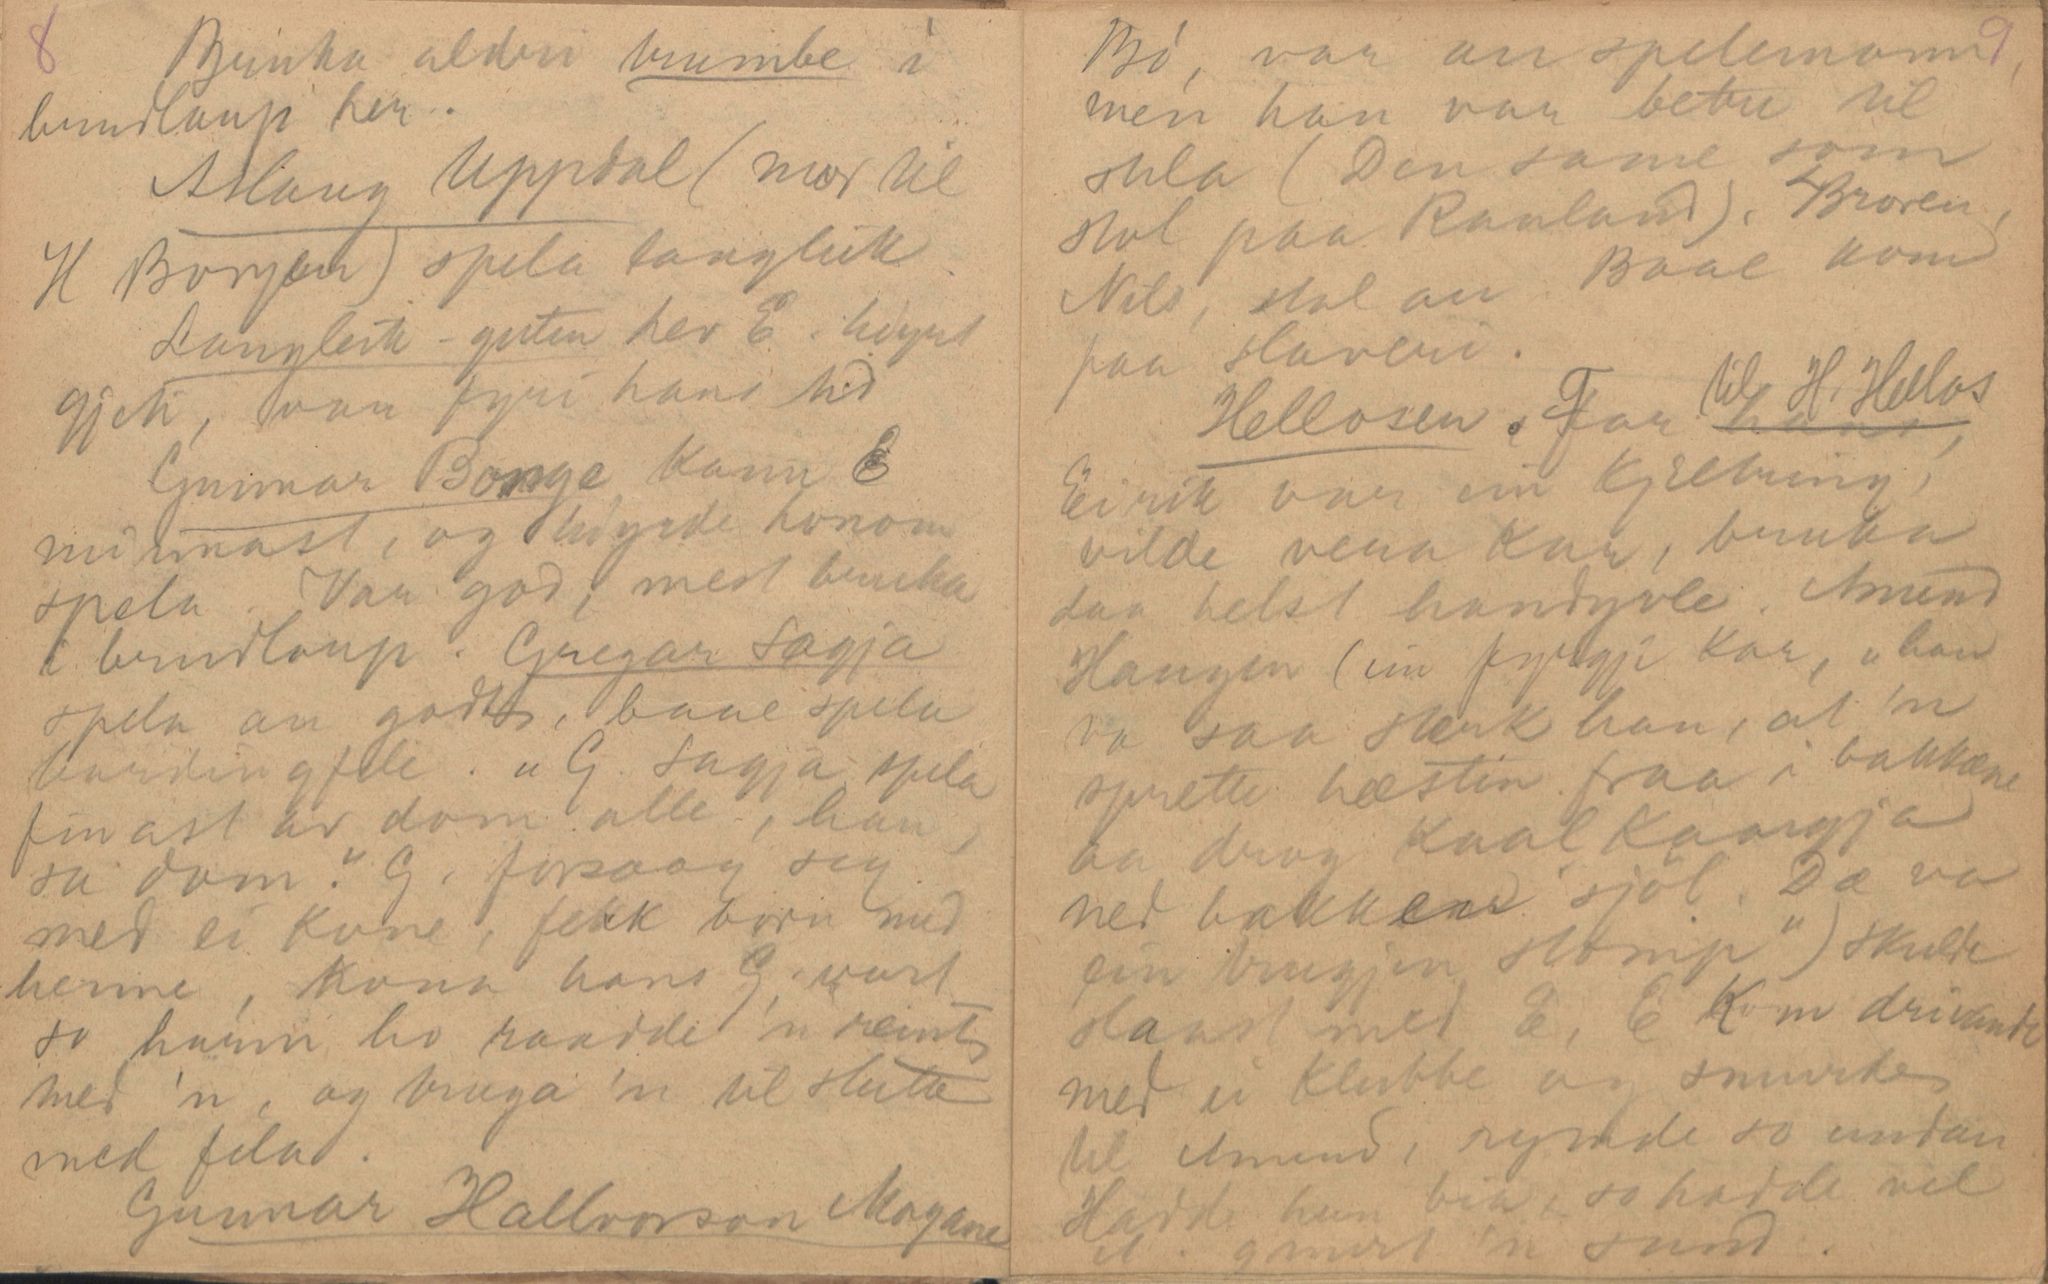 8
Bruka aldri trumbe i
brudlaup her.
Aslaug Uppdal (mor til
H Borgen) spela langleik
Langleik-guten hev E. höyrt
gjeti, var fyri hans tid
Gunnar Borge kann E
minnast, og höyrde honom
spela. Var god, mest bruka
i brudlaup. Gregar Sagja
spela au godt, baae spela
hardingfele. "G. Sagja spela
finast av dom alle, han,
sa dom." G. forsaag seg
med ei kone, fekk born med
henne, kona hans G. vart
so harm ho raadde 'n reint
med 'n, og truga 'n til slutta
med fela.
Gunnar Hallvorson Mogane
9
Bö, var au spelemann,
men han var betre til
stela (Den same som
stol paa Rauland). Broren,
Nils, stol au. Baae kom
paa slaveri.
Hellosen. Far til H. Hellos
hans,
Eirik var ein kjeltring,
vilde vera kar, bruka
daa helst handyvle. Amund
Haugen (ein fyrigji kar, "han
va saa stærk han, at 'n
sprette hæstin fraa i bakkane
aa drog kaal kaargja
ned bakken sjöl. Dæ va
ein brugjen stomp") skulde
slaast med E, E kom drivande
med ei klubbe og smurde
til Amund, rymde so undan
Hadde han bia, so hadde vel
A. gmort 'n sund.